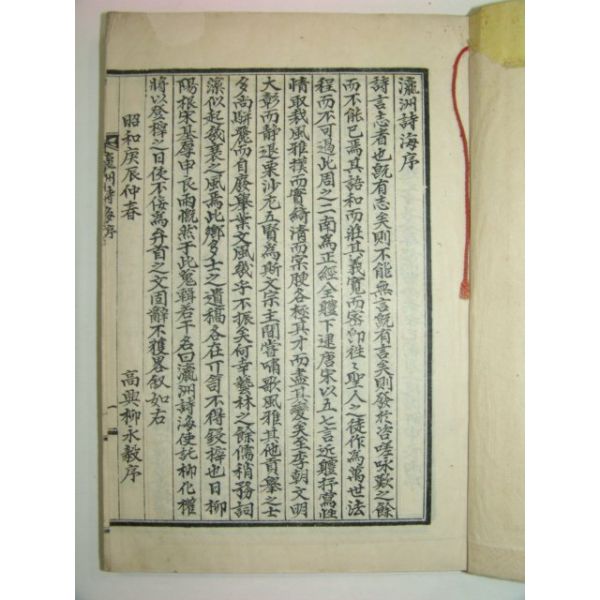 瀛洲詩海序
詩言志者也旣有志矣則不能無言旣有言矣則發於咨嗟咏歎之餘
而不能已焉其語和而莊其義寬而密卽往〻聖人之徒作爲萬世法
程而不可過此周之二南爲正經全體下逮唐宋以五七言近體抒寫性
情取裁風雅撲而實綺清而腴各極其才而盡其變矣至李朝文明
大彰而静退栗沙尤五賢爲斯文宗主間嘗嘯歌風雅其他貢擧之士
多尙騈儷而自廢擧業文風幾乎不振矣何幸藝林之餘儒稍務詞
藻似起衰之風焉此鄕多士之遺稿各在丌笥不得鋟梓也日柳
陽根宋基羣申長雨慨然于此蒐輯若干名曰瀛洲詩海使託柳化權
將以登梓之日使不侫爲弁首之文固辭不獲畧叙如右
昭和庚辰仲春
高興柳永教序
瀛洲詩海序
一